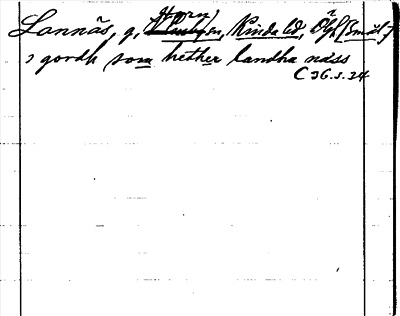 Horn
Lannäs, g, sn, Kinda hd, Ög, (Smål)
i gordh som hether landha näss
C 26.s.24